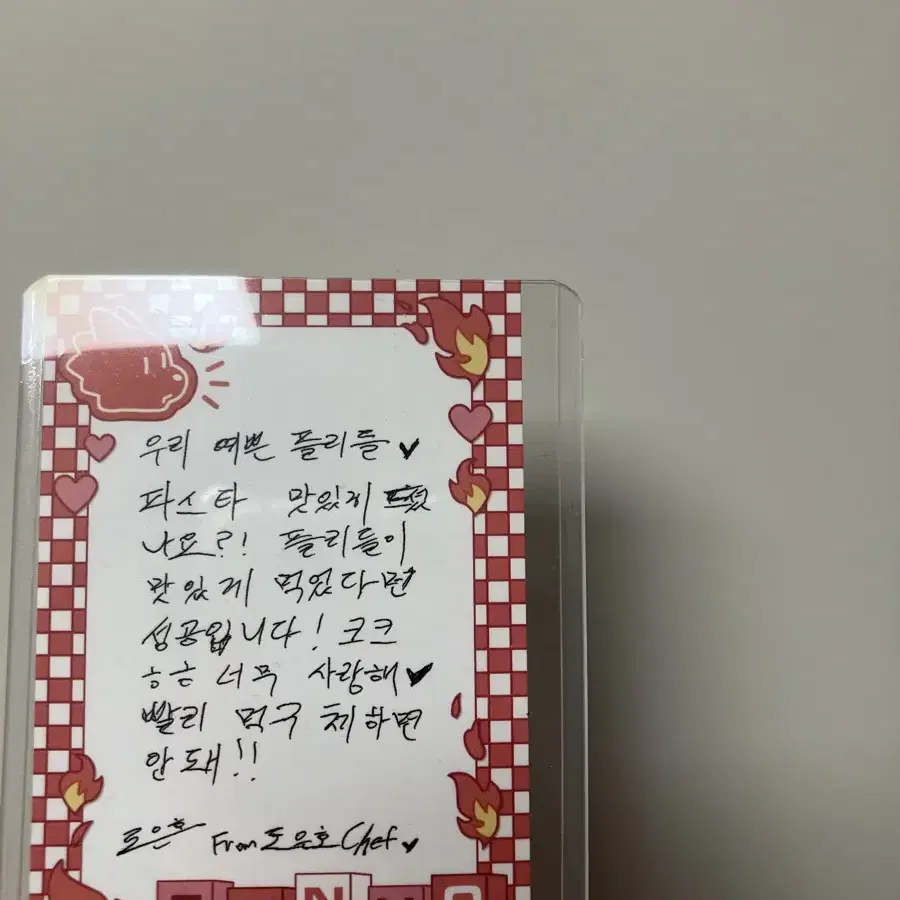 우리 예쁜 플리들 ♥
파스타 맛있게 드셨
나요?! 플리들이
맛있게 먹었다면
성공입니다! 코크
ㅎㅎ 너무 사랑해 ♥
빨리 먹구 체하면
안돼!!
도은호 From 도은호 Chef ♥